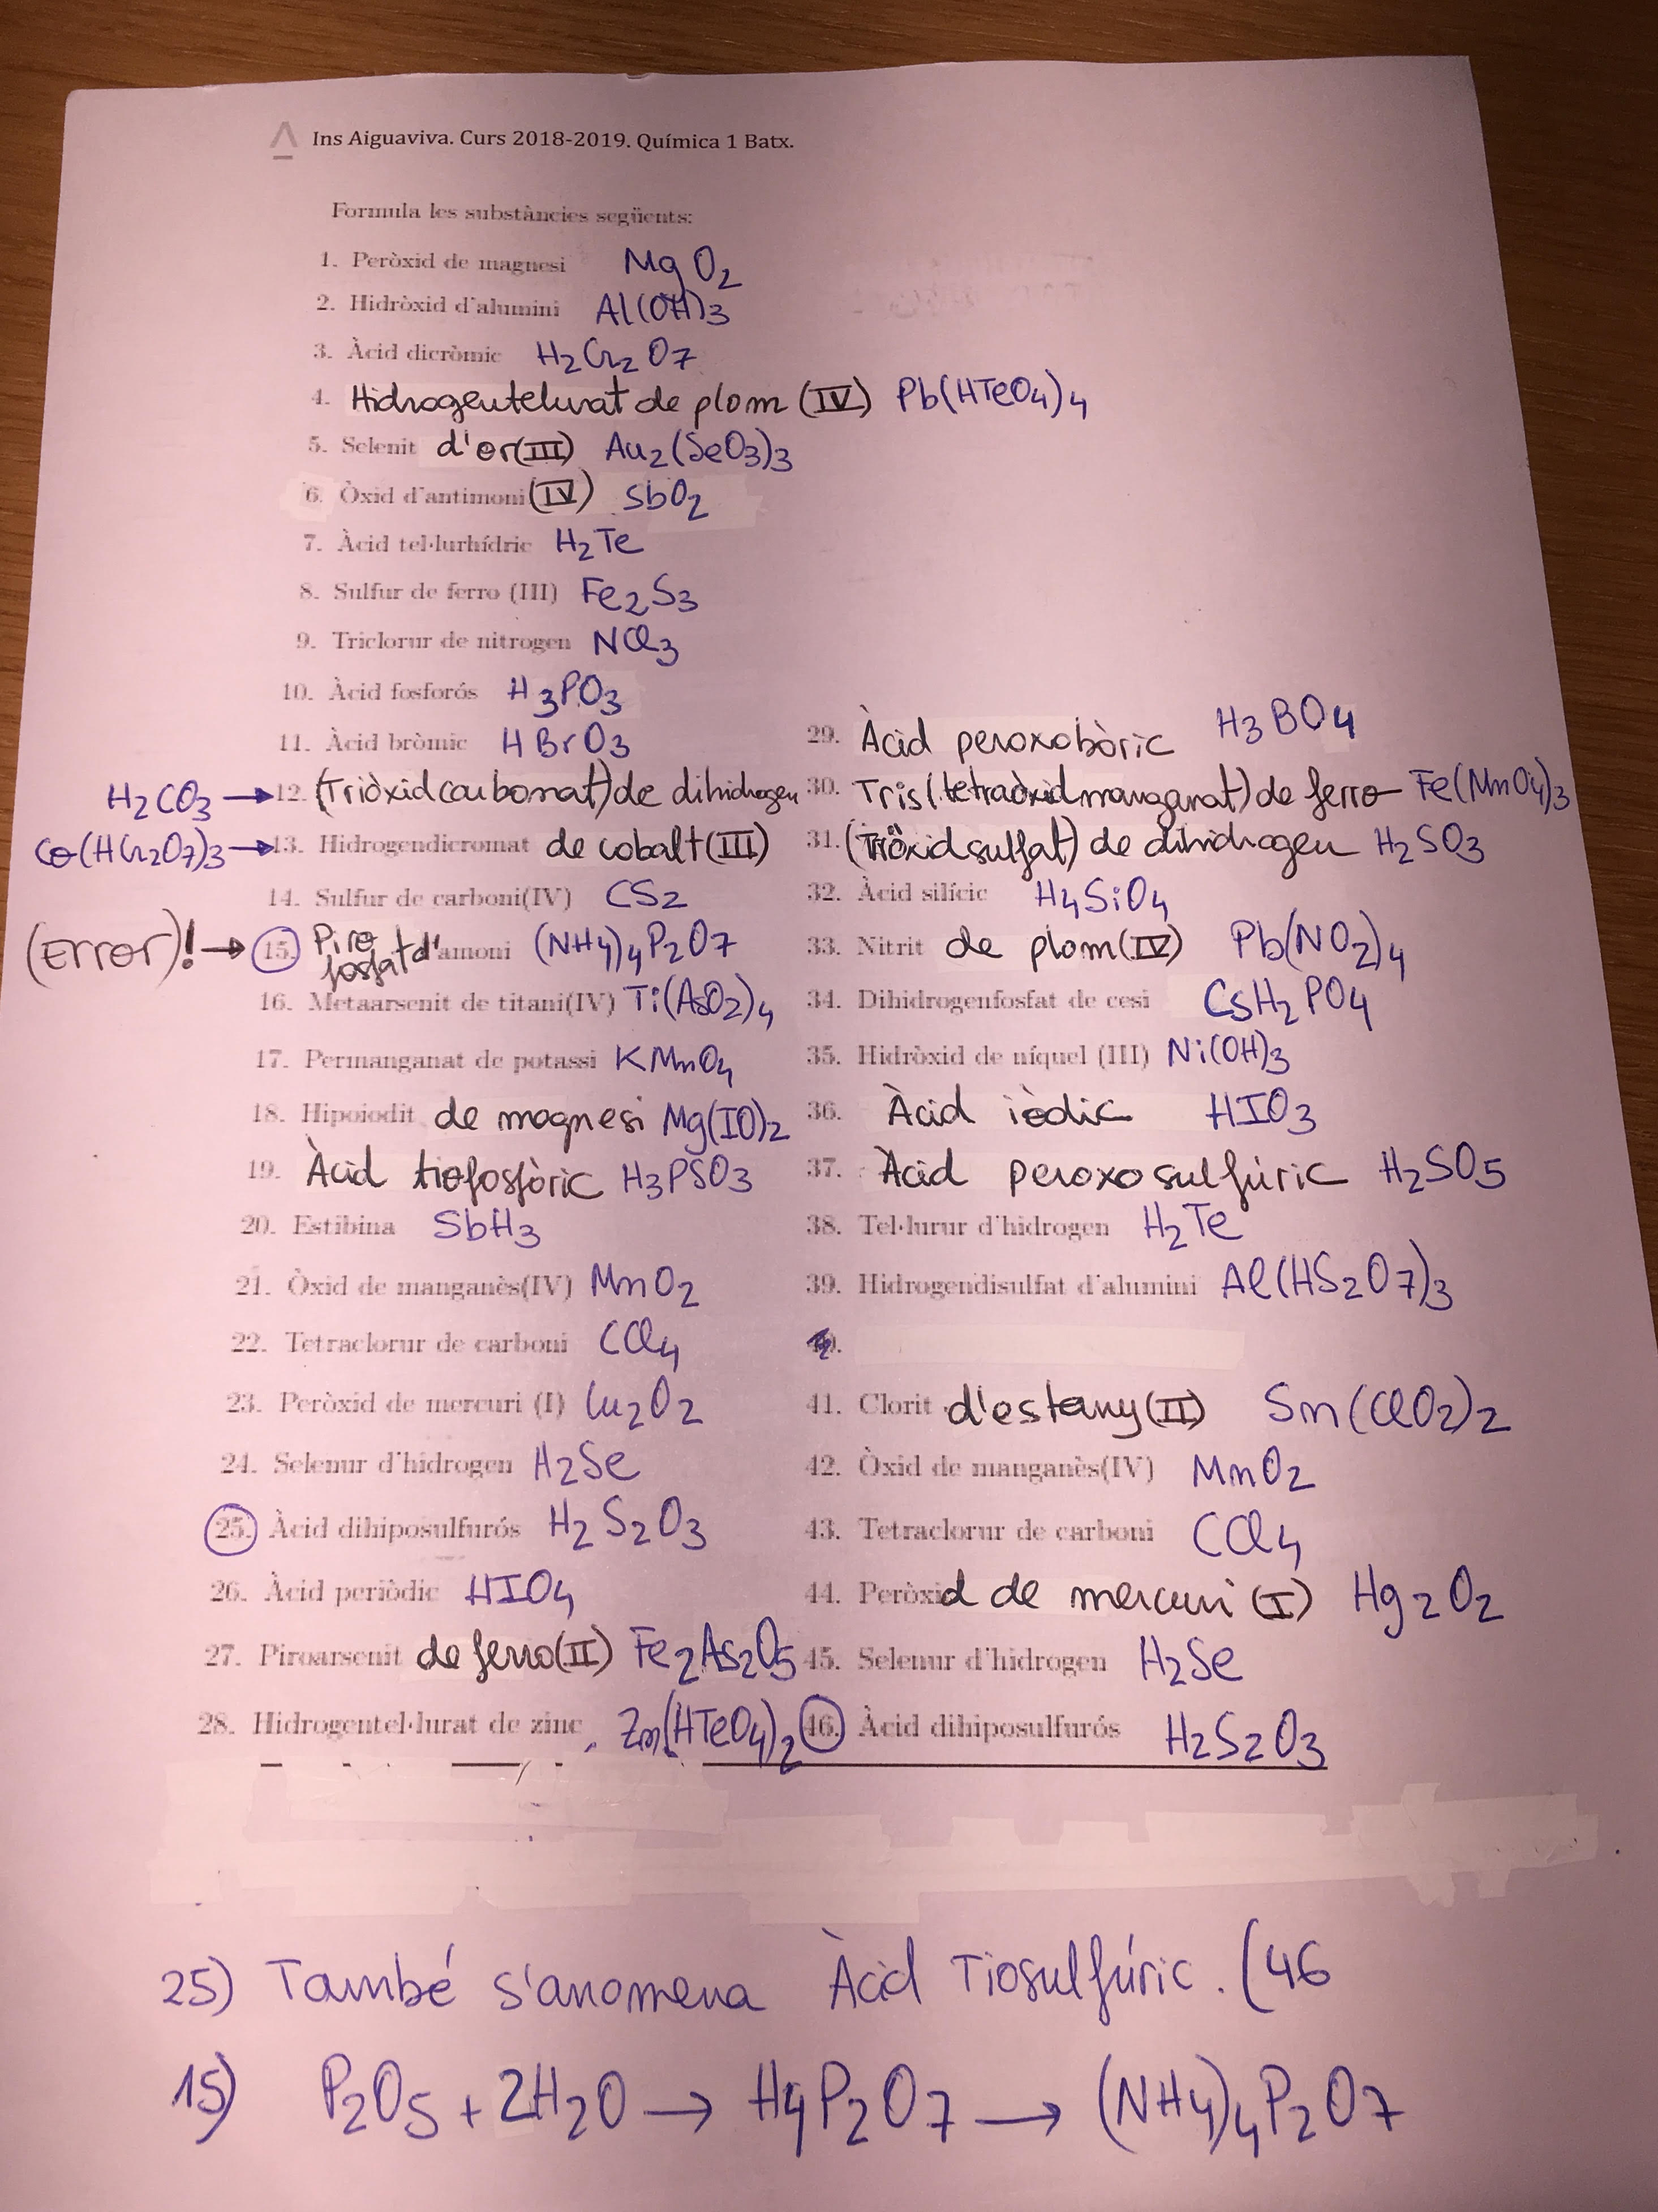 Ins Aiguaviva. Curs 2018-2019. Química 1 Batx.
Formula les substàncies següents:
1. Peròxid de magnesi MgO2
2. Hidròxid d'alumini Al(OH)3
3. Àcid dicròmic H2Cr2O7
4. Hidrogentelurat de plom (IV) Pb(HTeO4)4
5. Selenit d'or(III) Au2(SeO3)3
6. Òxid d'antimoni(IV) SbO2
7. Àcid tel·lurhídric H2Te
8. Sulfur de ferro (III) Fe2S3
9. Triclorur de nitrogen NCl3
10. Àcid fosforós H3PO3
11. Àcid bròmic HBrO3
H2CO3 → 12. (Triòxidcarbonat)de dihidrogen
Co(HCr2O7)3 → 13. Hidrogendicromat de cobalt(III)
14. Sulfur de carboni(IV) CS2
(Error)! → 15. Pirofosfat d'amoni (NH4)4P2O7
16. Metaarsenit de titani(IV) Ti(AsO2)4
17. Permanganat de potassi KMnO4
18. Hipoiodit de magnesi Mg(IO)2
19. Àcid tiofosfòric H3PSO3
20. Estibina SbH3
21. Òxid de manganès(IV) MnO2
22. Tetraclorur de carboni CCl4
23. Peròxid de mercuri (I) Cu2O2
24. Selenur d'hidrogen H2Se
25. Àcid dihiposulfurós H2S2O3
26. Àcid periòdic HIO4
27. Piroarsenit de ferro(II) Fe2As2O5
28. Hidrogentel·lurat de zinc Zn(HTeO4)2
29. Àcid peroxobòric H3BO4
30. Tris(tetraòxidmanganat)de ferro Fe(MnO4)3
31. (Triòxidsulfat) de dihidrogen H2SO3
32. Àcid silícic H4SiO4
33. Nitrit de plom(IV) Pb(NO2)4
34. Dihidrogenfosfat de cesi CsH2PO4
35. Hidròxid de níquel (III) Ni(OH)3
36. Àcid iòdic HIO3
37. Àcid peroxosulfúric H2SO5
38. Tel·lurur d'hidrogen H2Te
39. Hidrogendisulfat d'alumini Al(HS2O7)3
41. Clorit d'estany(II) Sn(ClO2)2
42. Òxid de manganès(IV) MnO2
43. Tetraclorur de carboni CCl4
44. Peròxid de mercuri (I) Hg2O2
45. Selenur d'hidrogen H2Se
46. Àcid dihiposulfurós H2S2O3
25) També s'anomena Àcid Tiosulfúric. (46
15) P2O5 + 2H2O → H4P2O7 → (NH4)4P2O7